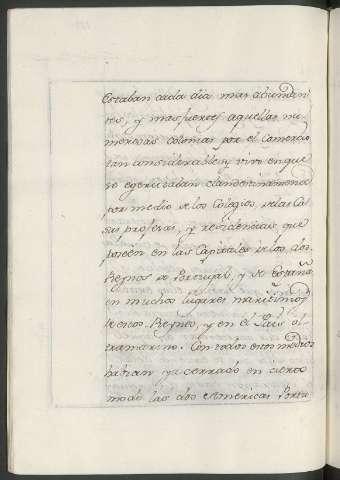 estaban cada dia mas abundan
tes, y mas fuertes aquellas nu
merosas colonias por el Comercio
tan considerable, y vivo en que
se egercitaban clandestinamente
por medio de los Colegios, de las Ca
sas profesas, y residencias, que
poseen en las Capitales de los dos
Reynos de Portugal, y de España
en muchos lugares maritimos
de estos Reynos, y en el Pais ul
tramarino. Con todos estos medios
habian ya cerrado en cierto
modo las dos Americas Portu